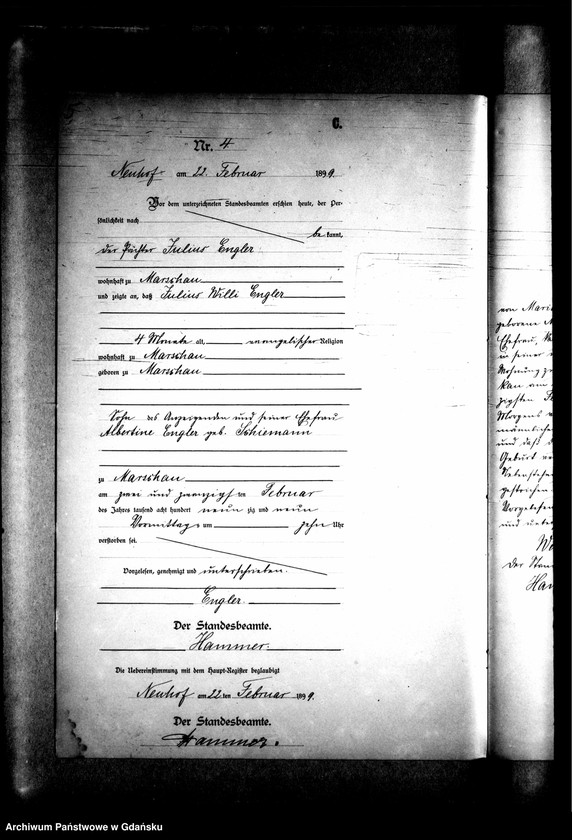 C.
Nr. 4
Neuhof am 22. Februar 1899.
Vor dem unterzeichneten Standesbeamten erschien heute, der Per-
sönlichkeit nach
bekannt,
der Pächter Julius Engler
wohnhaft zu Marschau
und zeigte an, daß Julius Willi Engler
4 Monate alt, evangelischer Religion
wohnhaft zu Marschau
geboren zu Marschau
Sohn des Anzeigenden und seiner Ehefrau
Albertine Engler geb. Schiemann
zu Marschau
am zwei und zwanzigsten Februar
des Jahres tausend acht hundert neunzig und neun
Vormittags um zehn Uhr
verstorben sei.
Vorgelesen, genehmigt und unterschrieben.
Engler
Der Standesbeamte.
Hammer.
Die Uebereinstimmung mit dem Haupt-Register beglaubigt
Neuhof am 22 ten Februar 1899.
Der Standesbeamte.
Hammer.
von Mari
geborene
Ehefrau
in seiner
Wohnung
am
Morgens
männliche
und daß
Geburt
gestrichen
Vorgelesen
und
Der Stan
Ham
Archiwum Państwowe w Gdańsku